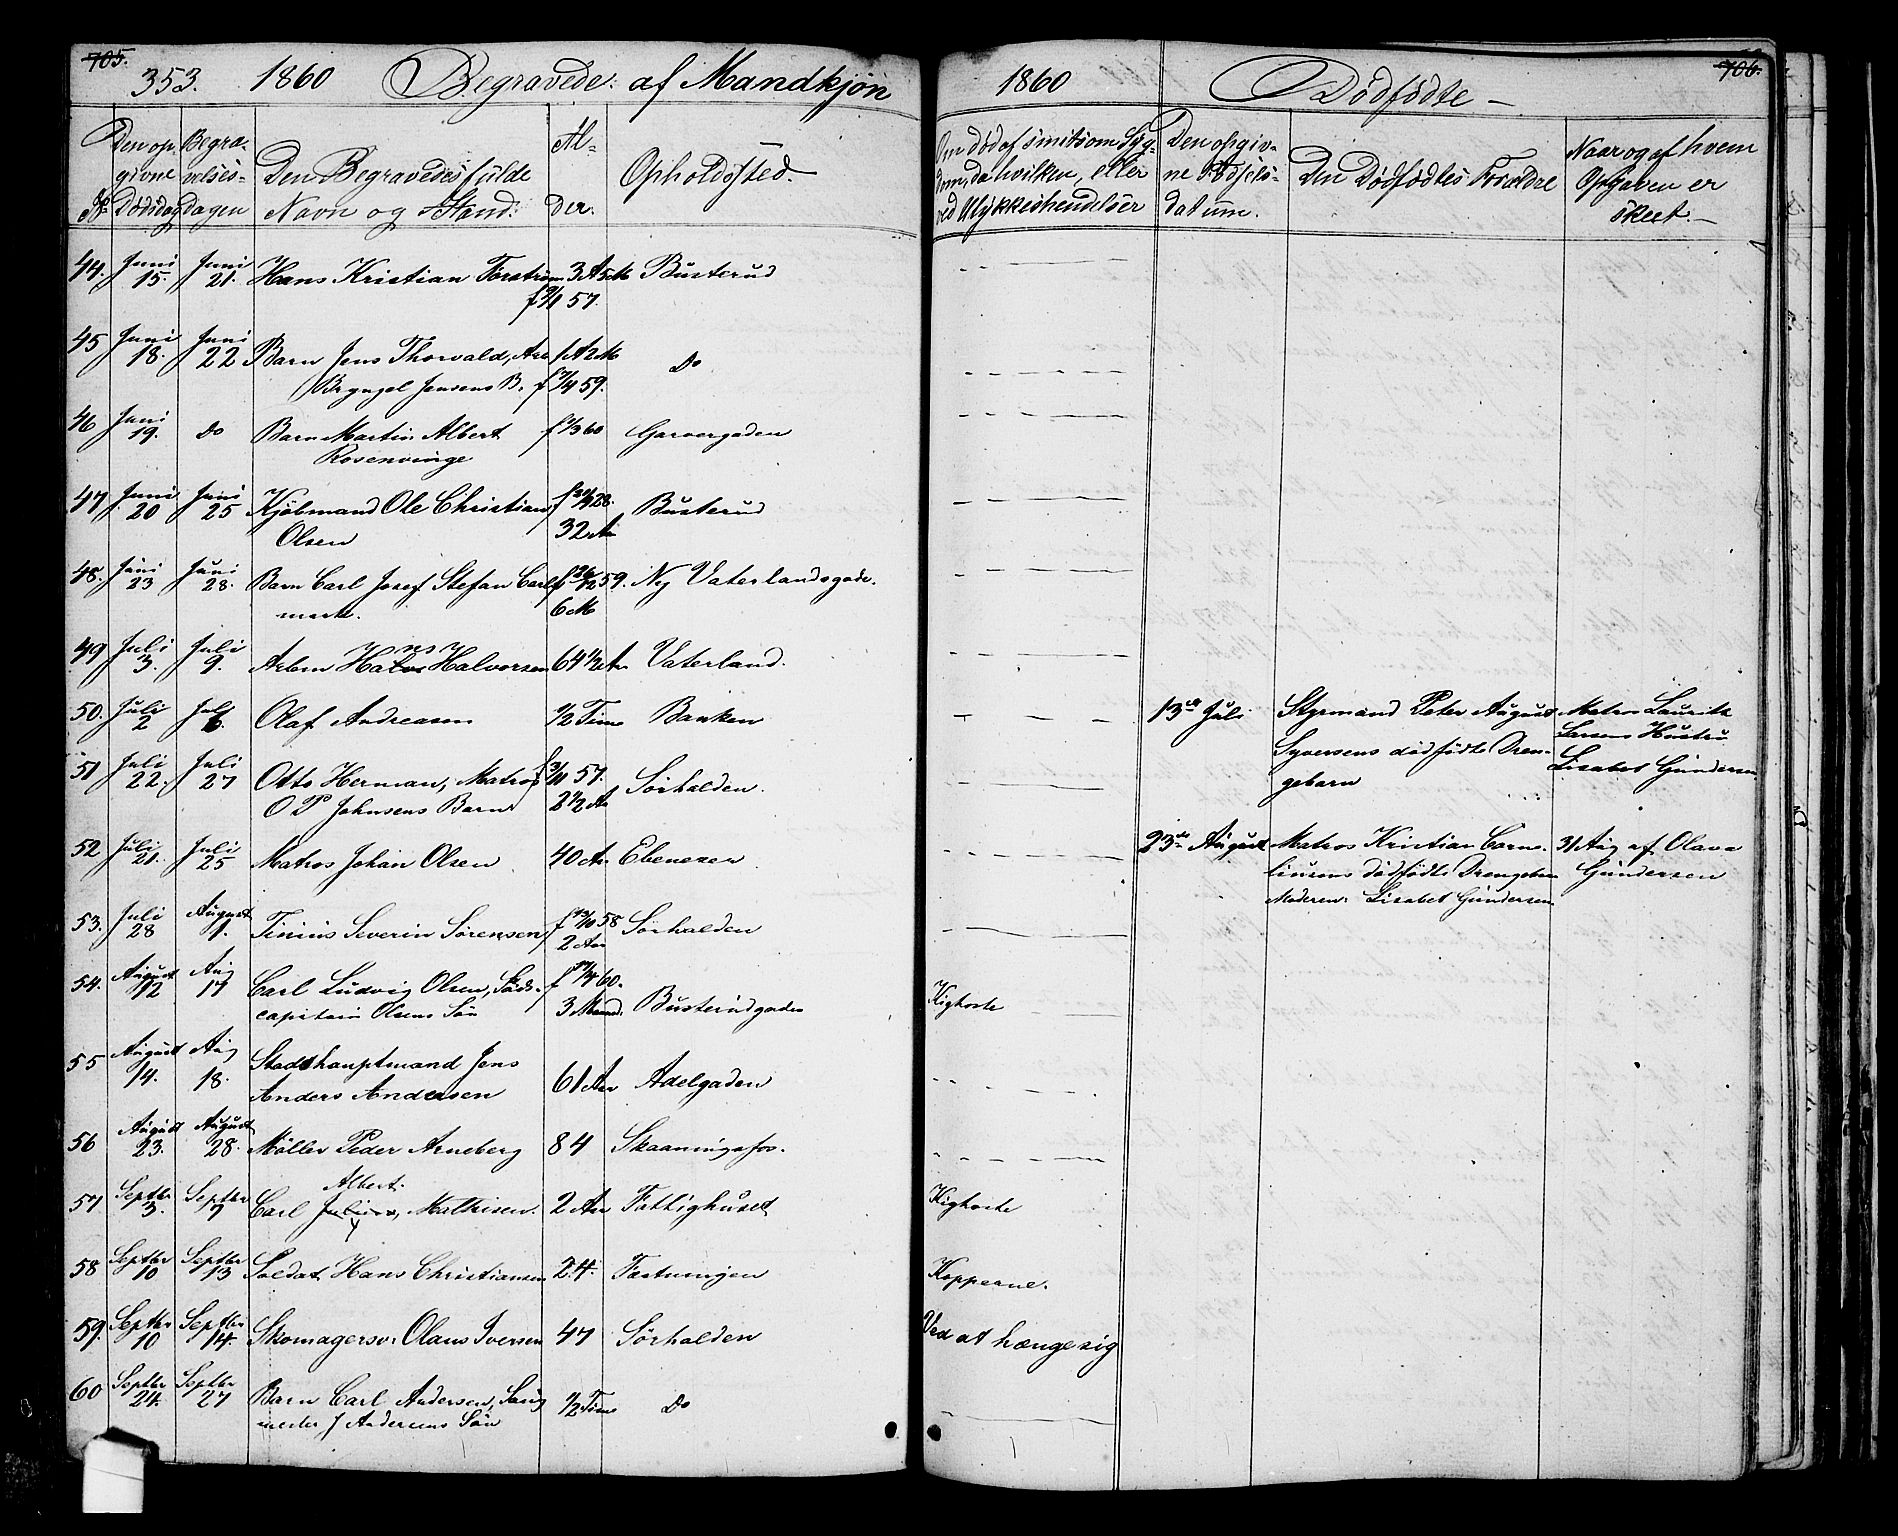 705.
353. 1860 Begravede: af Mandkjøn
Den op- givne Dödsdag
Begra- velses- dagen
Den Begravedes fulde Navn og Stand:
Al- Der.
Opholdssted.
No
44. Juni 15. Juni 21. Hans Kristian Torstrøm 3 Ar 5 M Busterud
57.
45 Juni 18. Juni 22 Barn Jens Thorvald, Arb
Bryngel Jensens B. 1 A 2 M f 59. Do
46 Juni 19. Do Barn Martin Albert f 60 Garvergaden
Rosenvinge
47 Juni 20 Juni 25 Kjöbmand Ole Christian f 28. Busterud
Olsen 32 Ar
48. Juni 23 Juni 28. Barn Carl Josef Stefan Carl f 26/12 59. Ny Vaterlandsgade.
6 M
49 Juli 3. Juli 9. Arbm Hans Halvorsen 64 1/2 Ar Vaterland.
50. Juli 2 Juli 6. Olaf Andreasen 1/2 Time Banken
51 Juli 22. Juli 27 Otto Herman, Matros 57. Sörhalden.
O P Johnsens Barn 2 1/2 Ar
52 Juli 21. Juli 25 Matros Johan Olsen 40 Ar Ebenezer
53. Juli 28 August 1. Tinius Severin Sørensen f 58 Sörhalden
2 Aar
54. August 12 Aug 17 Carl Ludvig Olsen, Skibs- f 60. Busterudgaden
capitain Olsens Sön 3 Maand.
55 August 14. Aug 18. Stadshauptmand Jens
Anders Andersen 61 Aar Adelgaden
56 August 23. August 28. Möller Peder Arneberg 84 Skaaningsfos.
Albert.
57 Septbr 3. Septbr 7 Carl Julius, Mathisen. 2 Aar Fattighuset
58 Septbr 10 Septbr 13 Soldat Hans Christiansen 24. Fæstningen
59. Septbr 10 Septbr 14. Skomagersv. Olaus Iversen 47 Sörhalden
60 Septbr 24. Septbr 27 Barn Carl Andersen, Saug
mester J Andersens Sön 1/2 Time Do
706.
1860 Dödfödte
Om død af smitsom Syg- dom, da hvilken, eller ved Ulykkeshendelser
Den opgiv- ne Fødsels- datum.
Den Dödfödtes Forældre
Naar og af hvem Opgaven er skeet.
13de Juli Styrmand Peter August Matros Laurits
Syversens dödfödte Dren- Larsens Hustru
gebarn Lisabet Gundersen
23de August Matros Kristian Corne- 31 Aug af Olava
liusens dödfödte Drengebarn Gundersen
Moderen: Lisabet Gundersen
Kighoste
Kighoste
Kopperne.
Ved at hænge sig